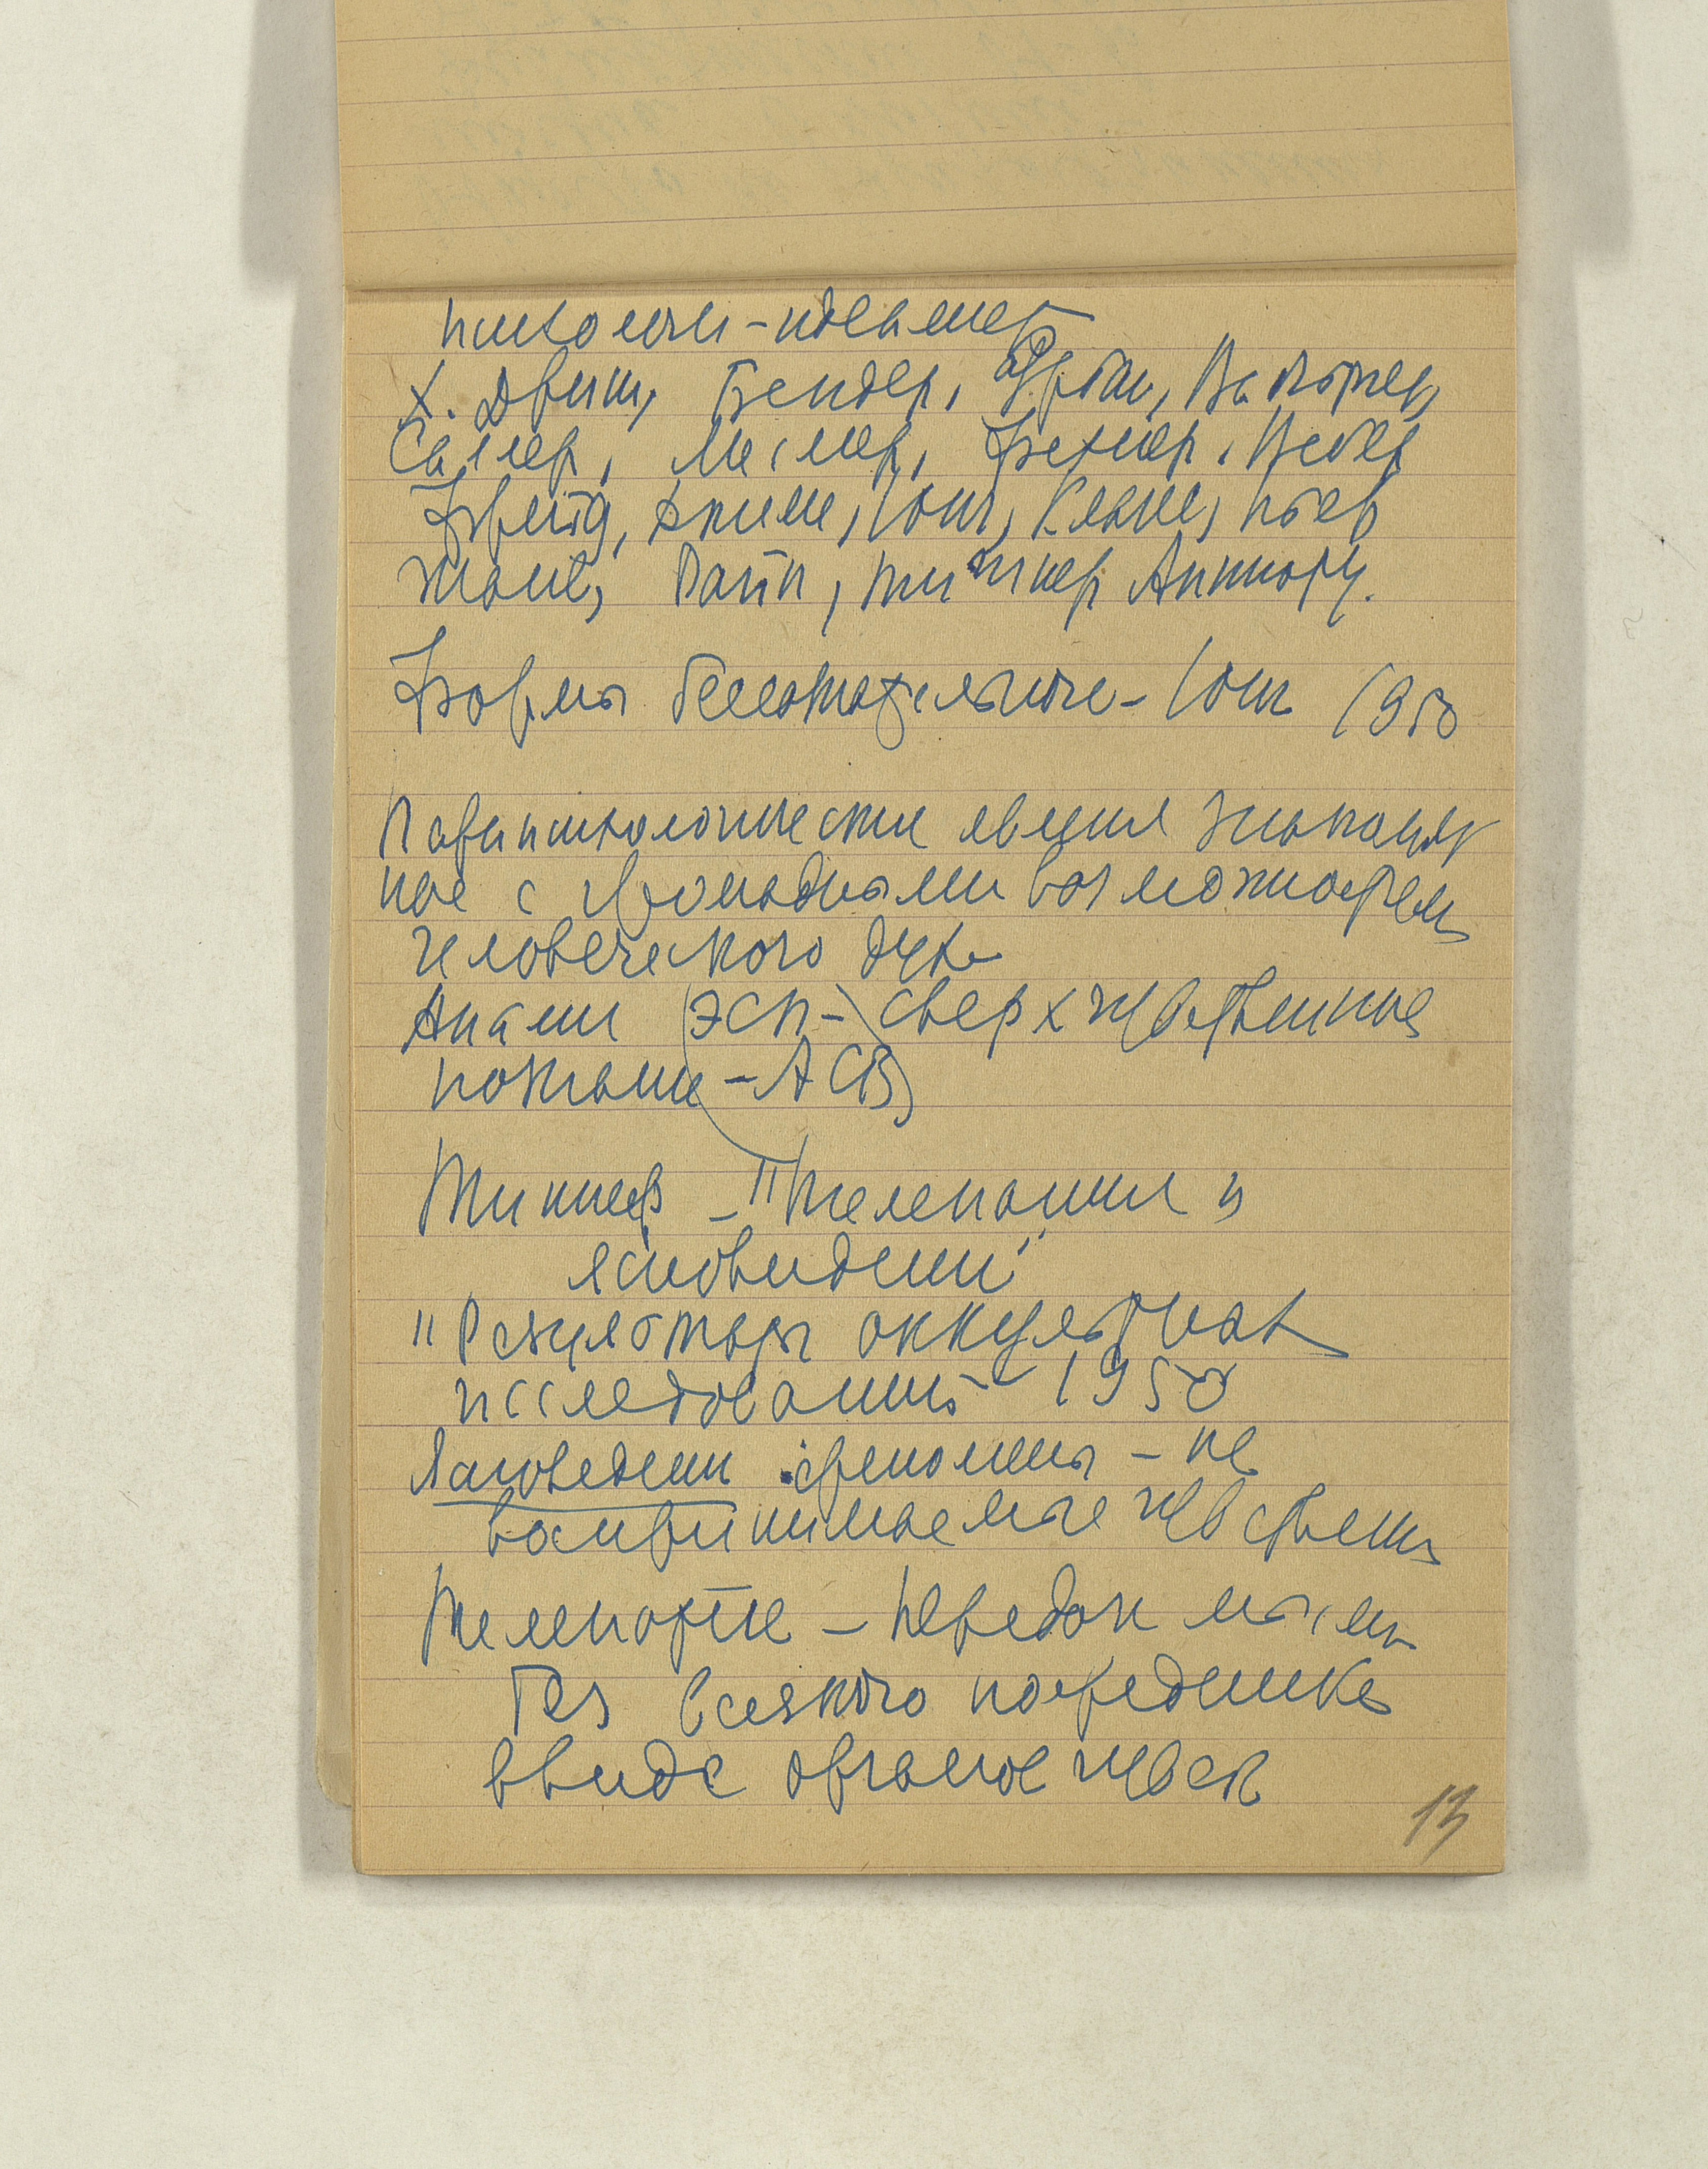 психологи-идеалист
Х. Дриш, Бендер, Урбан, Вальтер,
Месмер, Фехнер, Вебер
Фрейд, Юнг, Пьер
Жане, Райн, Тишнер
Формы бессознательного - Юнг 1950
Парапсихологические явления
с громадными возможностями
человеческого духа
(ЭСП - сверхчувственное
познание - АСВ)
Тишнер - "Телепатия и
ясновидение"
"Результаты оккультных
исследований" 1950
Ясновидение феномены - не
воспринимаемые чувствен
Телепатия - передача мысли
без всякого посредника
ввиде органов чувств
13